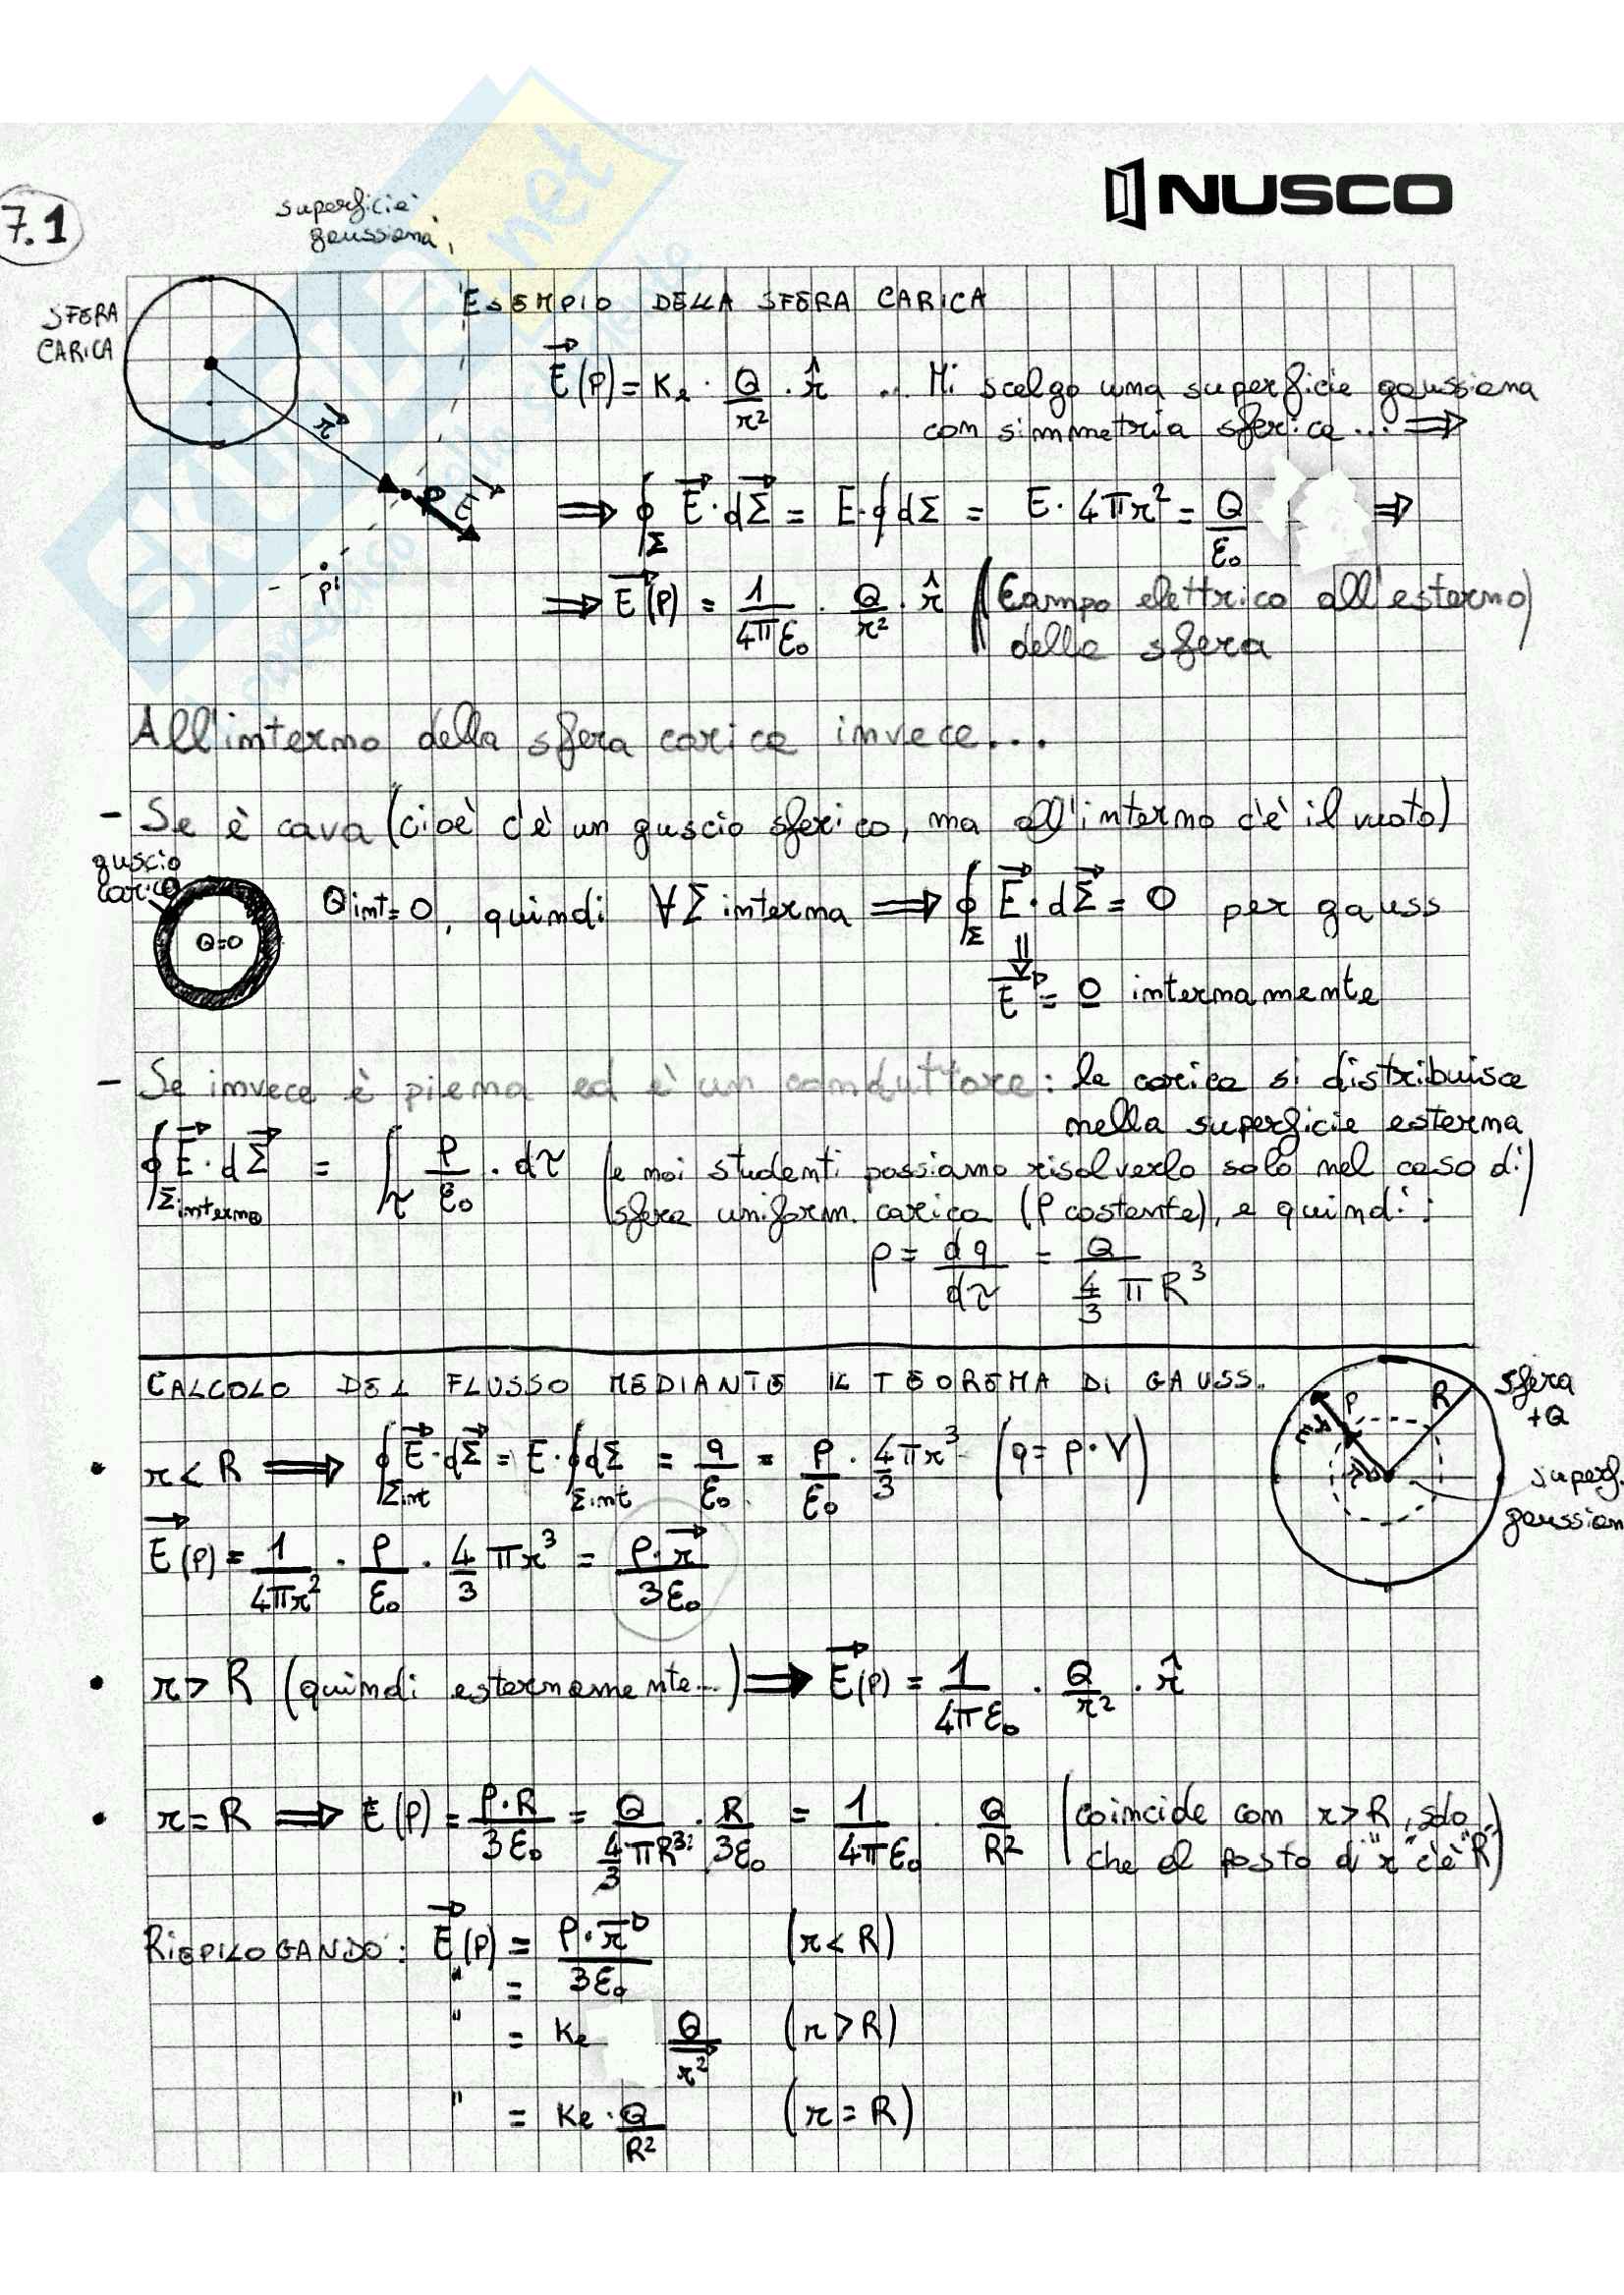 NUSCO
7.1
superficie
gaussiana
SFERA
CARICA
ESEMPIO DELLA SFERA CARICA
E(P) = Ke · Q/r² · r̂ ... Mi scelgo una superficie gaussiana
con simmetria sferica... ⟹
r
P E
P'
⟹ ∮Σ E · dΣ = E · ∮ dΣ = E · 4πr² = Q/ε₀ ⟹
⟹ E(P) = 1/4πε₀ · Q/r² · r̂ (Campo elettrico all'esterno)
della sfera
All'interno della sfera carica invece...
- Se è cava (cioè c'è un guscio sferico, ma all'interno c'è il vuoto)
guscio
carico
Q=0
Qint=0, quindi ∀Σ interna ⟹ ∮Σ E · dΣ = 0 per gauss
⇓
E = 0 internamente
- Se invece è piena ed è un conduttore: la carica si distribuisce
nella superficie esterna
∮Σinterno E · dΣ = ∫τ ρ/ε₀ · dτ (e noi studenti possiamo risolverlo solo nel caso di)
sfera uniform. carica (ρ costante), e quindi:
ρ = dq/dτ = Q/(4/3 πR³)
CALCOLO DEL FLUSSO MEDIANTE IL TEOREMA DI GAUSS.
• r < R ⟹ ∮Σint E · dΣ = E · ∮Σint dΣ = q/ε₀ = ρ/ε₀ · 4/3 πr³ (q = ρ · V)
P R
E
r
sfera
+Q
superf.
gaussian
E(P) = 1/4πr² · ρ/ε₀ · 4/3 πr³ = ρ · r/3ε₀
• r > R (quindi esternamente...) ⟹ E(P) = 1/4πε₀ · Q/r² · r̂
• r = R ⟹ E(P) = ρ·R/3ε₀ = Q/(4/3 πR³) · R/3ε₀ = 1/4πε₀ · Q/R² (coincide con r > R, solo
che al posto di "r" c'è "R")
RIEPILOGANDO: E(P) = ρ · r/3ε₀ (r < R)
" =
" = Ke Q/r² (r > R)
" = Ke · Q/R² (r = R)